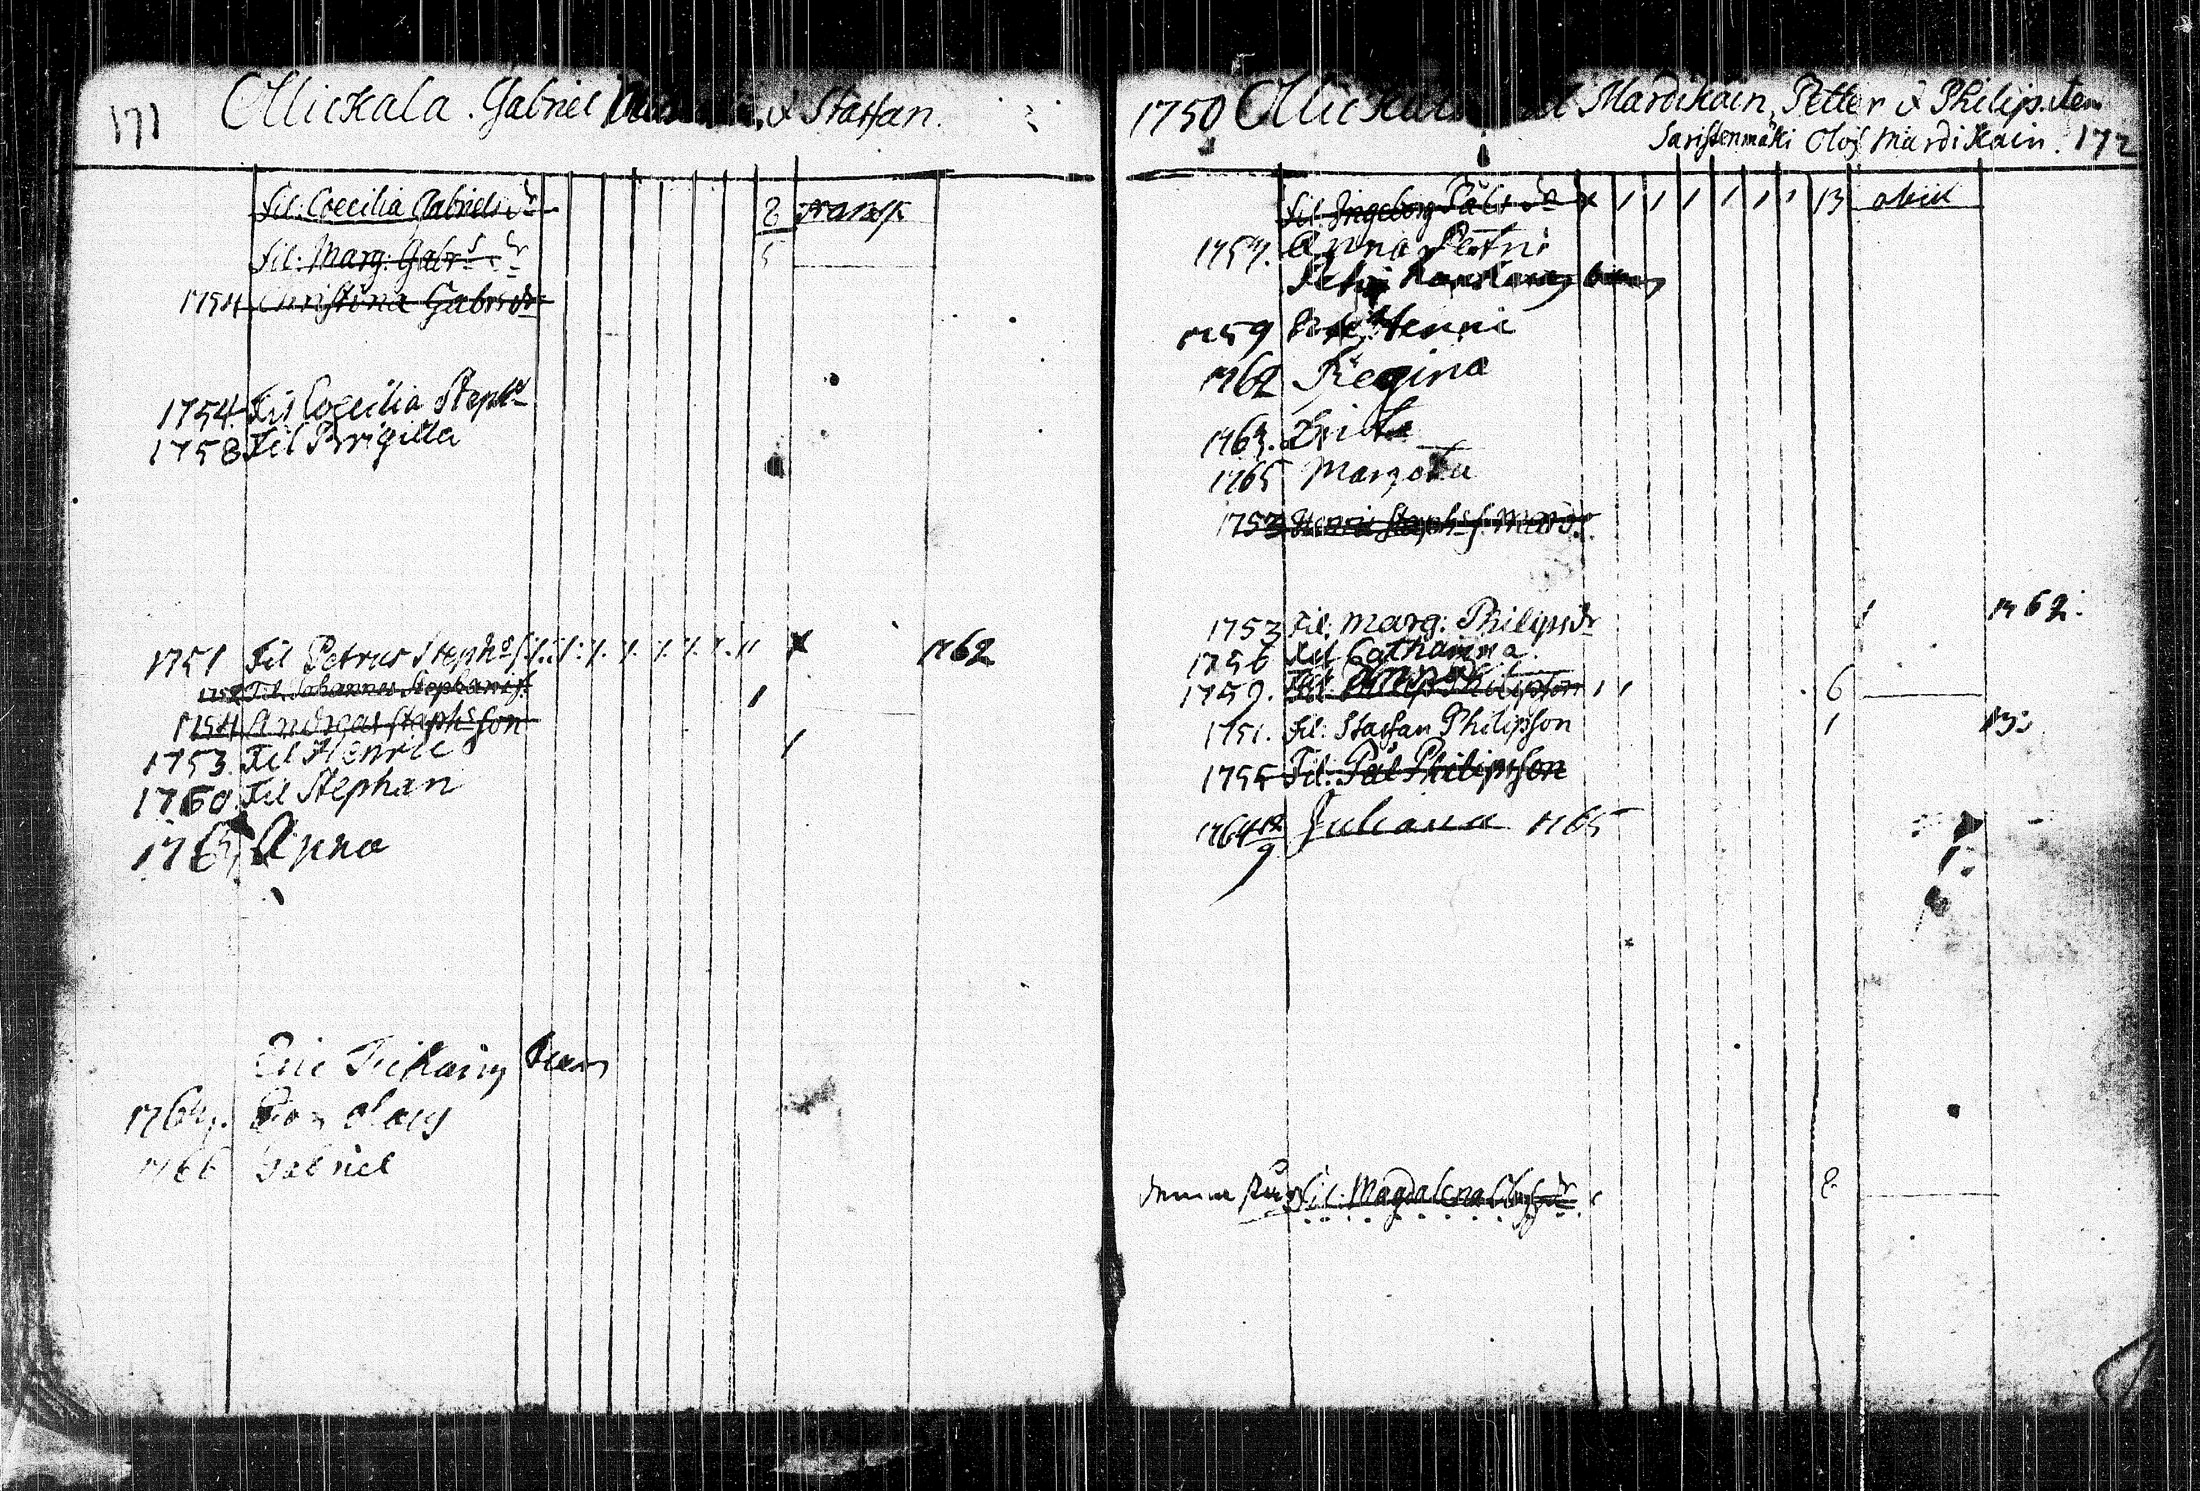 171 Mickala. Gabriel & Staffan.
Fil: Coecilia Gabriels dr 8 transp.
Fil: Marg: Gabr s dr 5
1754 Christina Gabrs dr
1754. Fil Coecilia Steph
1758 Fil Brigitta
1751 Fil Petrus Steph s f. x 1762
1752 Fil. Johannes Stephani f. 1
1754 Andreas Stephs son
1753. Fil Henric 1
1760. Fil Stephan
Anna
Eric
Olavs
1766 Gabriel
1750 Mardikain, Petter & Philip. item
Saristenmäki Olof Mardikain. 172
Fil: Ingeborg Påls dr x 1 1 1 1 1 1 13 obiit
1757. Anna Petri
1759 Henric
1762 Regina
Brita
1765 Margeta
1753 Henric Steph s f. Mard
1753 Fil: Marg: Philipsdr 1 1762.
1756 Fil Catharina
1759. Philipsson 1 1 6
1751. Fil: Staffan Philipsson 1
1755 Fil: Pål Philipsson
1764 12/9 Juliana 1765
Fil: Magdalena Olofs dr 8